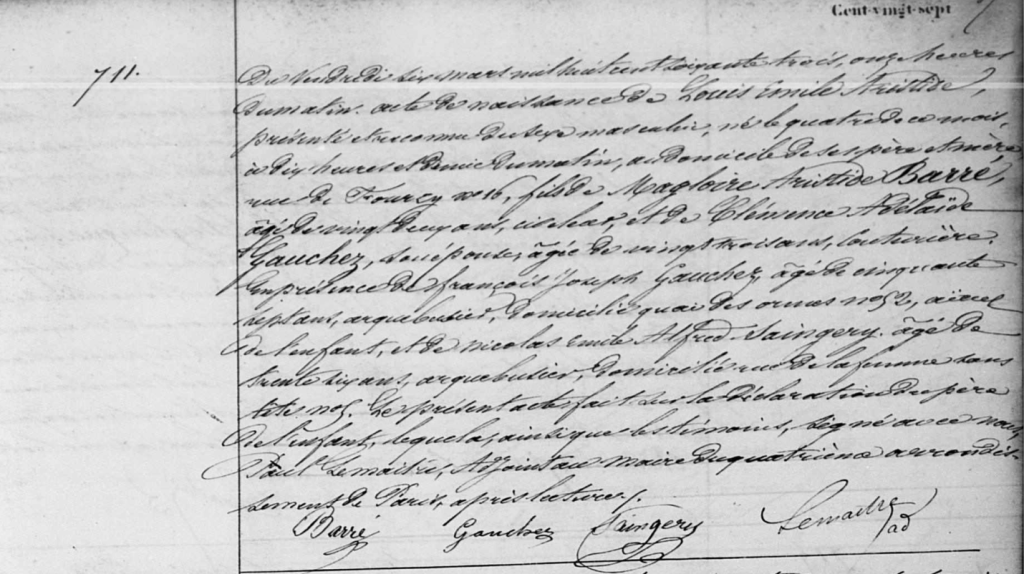 Cent-vingt-sept
711.
Du Vendredi six mars mil huit cent soixante trois, onze heures
du matin. acte de naissance de Louis Emile Aristide,
présenté et reconnu du sexe masculin, né le quatre de ce mois,
à dix heures et demie du matin, au domicile de ses père et mère
rue de Fourcy no 16, fils de Magloire Aristide Barré,
âgé de vingt deux ans, ciseleur, et de Clémence Adélaïde
Gauchez, son épouse, âgée de vingt trois ans, Couturière.
En présence de françois Joseph Gauchez, âgé de cinquante
sept ans, arquebusier, domicilié quai des ormes no 52, aïeul
de l'enfant, et de nicolas Emile Alfred Saingery, âgé de
trente six ans, arquebusier, domicilié rue de la femme sans
tête no 5. Le présent acte fait sur la déclaration du père
de l'enfant, lequel a, ainsi que les témoins, signé avec nous,
Paul Lemaitre, Adjoint au maire du quatrième arrondis-
sement de Paris, après lecture ./.
Barré Gauchez Saingery Lemaitre
ad